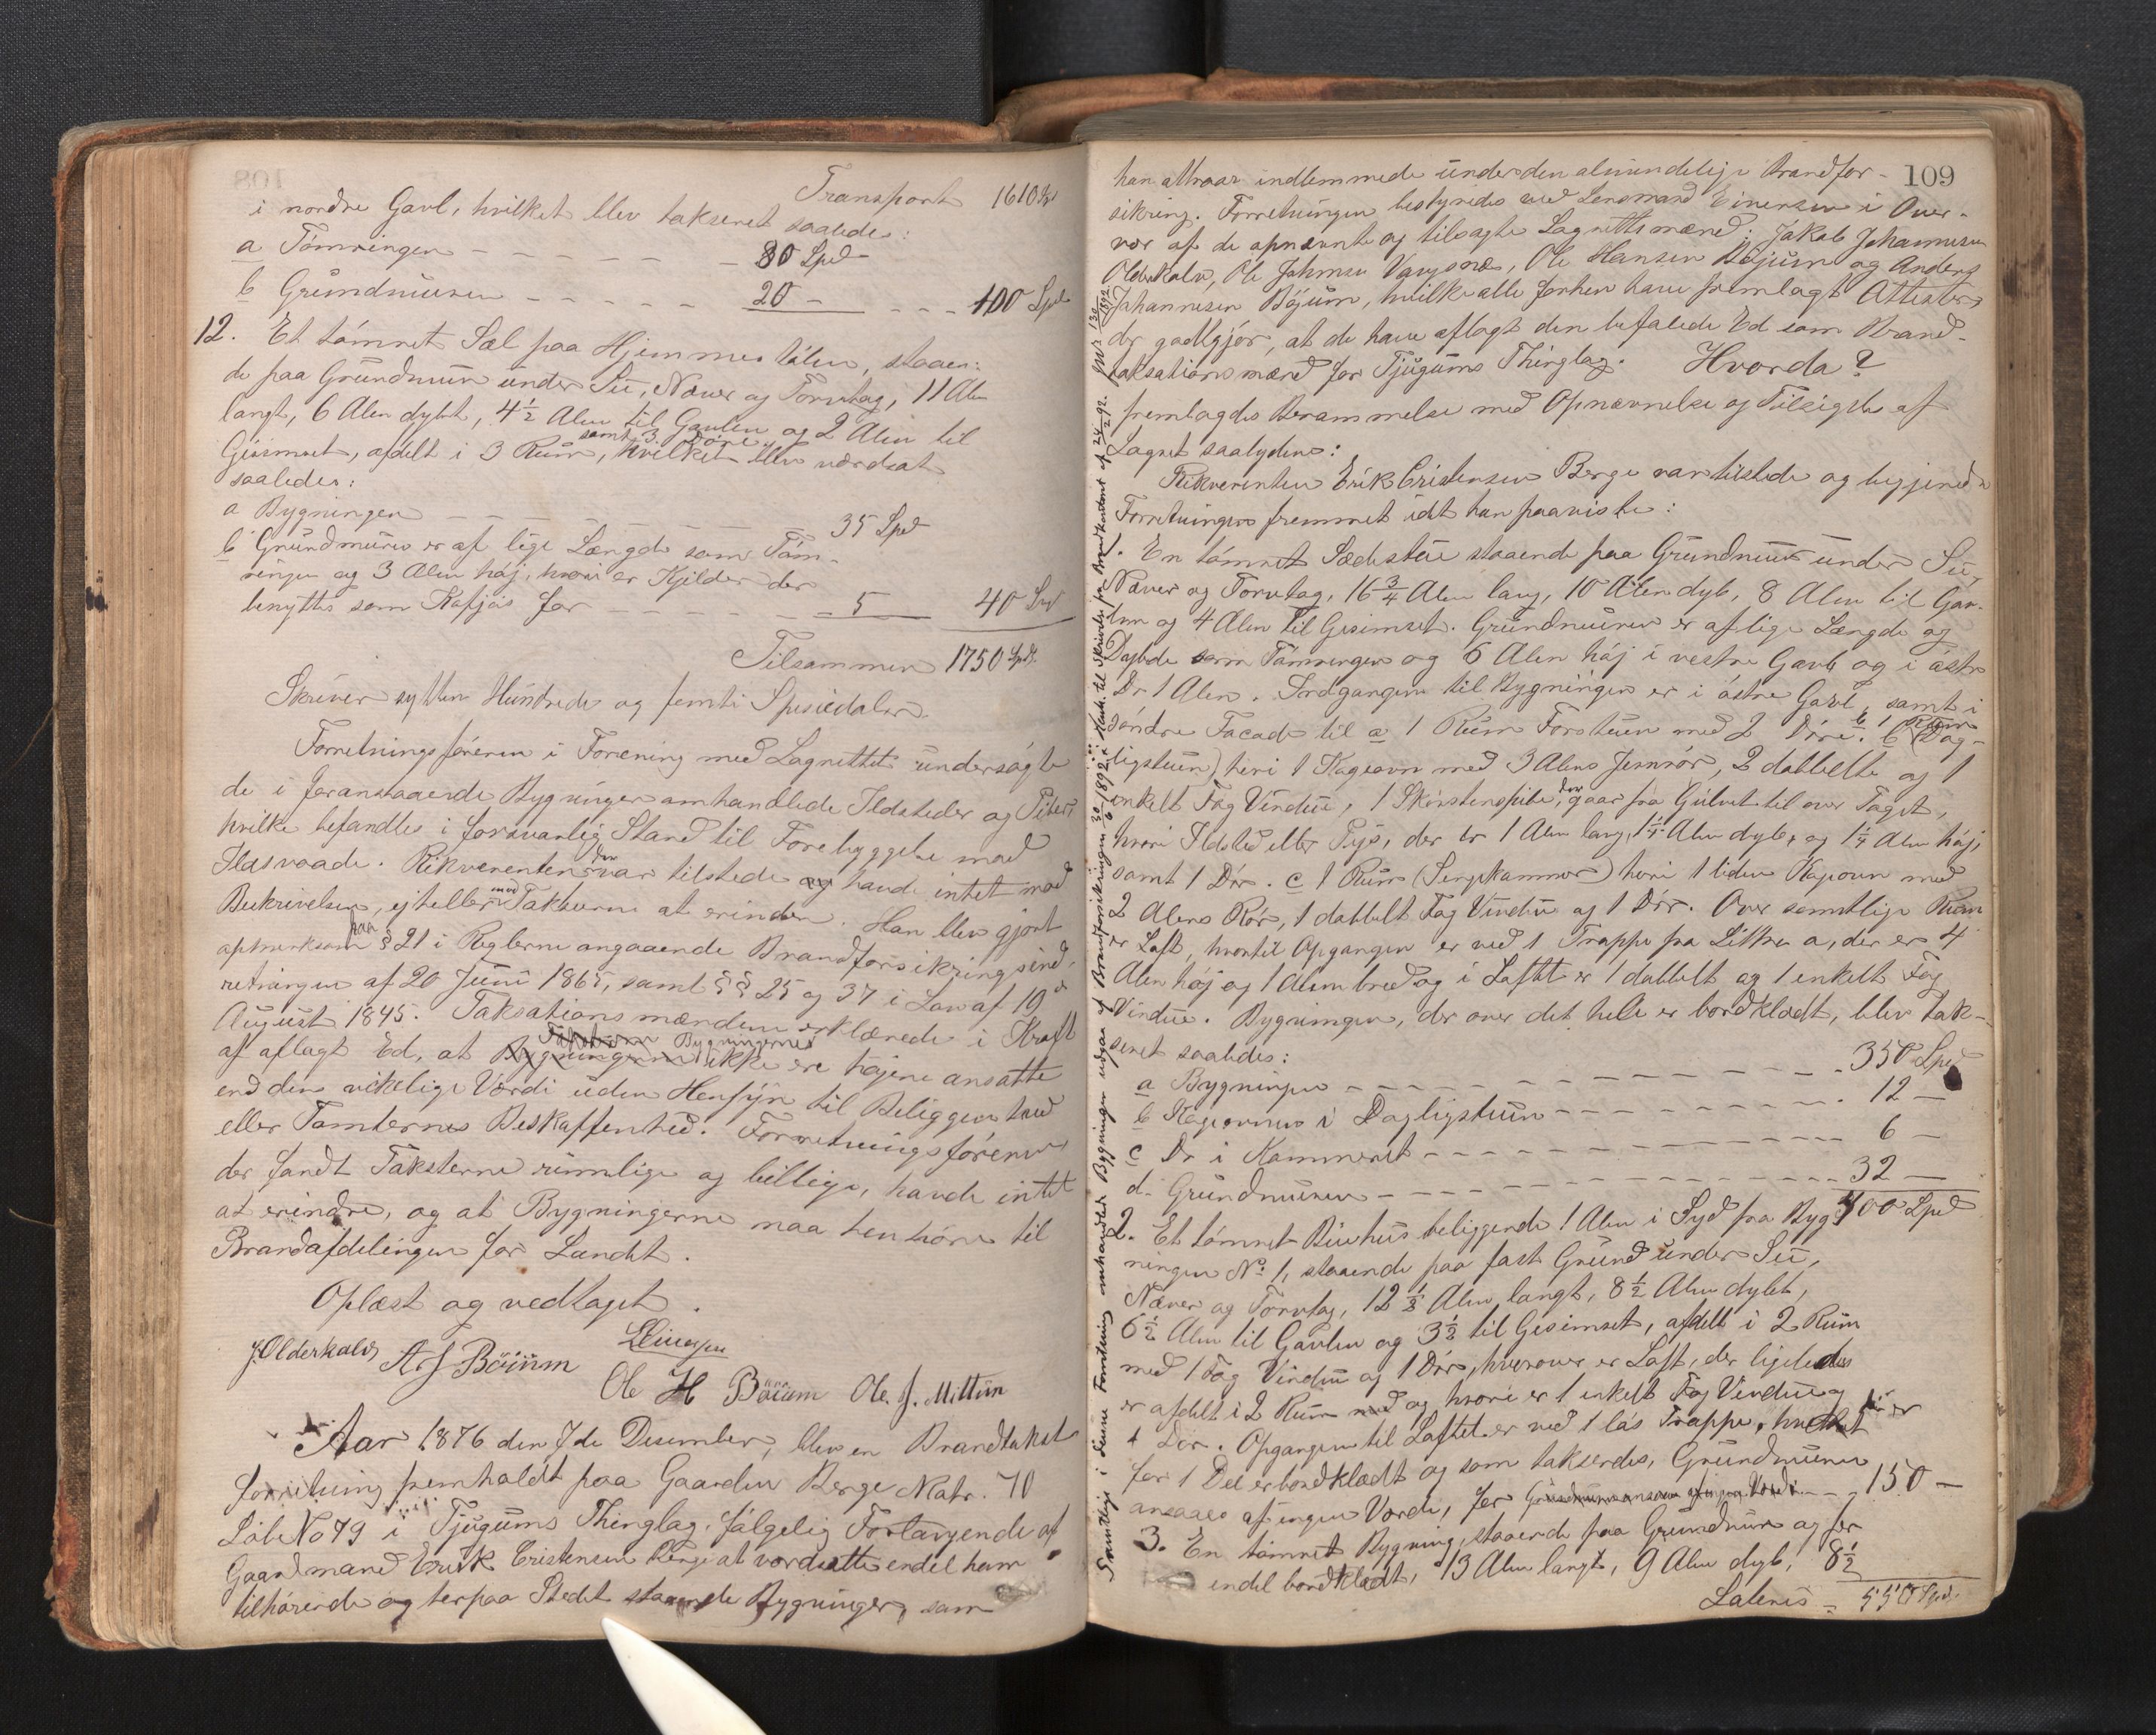 Transport 1610 Sp
i nordre Gavl, hvilket blev takseret saaledes:
a Tømringen - - - - - - 80 Spd
b Grundmuren - - - - - 20 - - - - 100 Spd
12. Et tømret Sæl paa Hjemmestølen, staaen-
de paa Grundmur under Su, Næver og Torvtag, 11 Alen
langt, 6 Alen dybt, 4½ Alen til Gavlen og 2 Alen til
Gesimset, afdelt i 3 Rum, samt 3 Døre, hvilket blev værdsat
saaledes:
a Bygningen - - - - - 35 Spd
b Grundmuren er af lige Længde som Tøm-
ringen og 3 Alen høj, hvori er Kjelder der
benyttes som Kufjøs for - - - - - 5 40 Spd
Tilsammen 1750 Spd.
Skriver sytten Hundrede og femti Spesiedaler.
Forretningsføreren i Forening med Lagrettet undersøgte
de i foranstaaende Bygninger omhandlede Ildsteder og Piber,
hvilke befandtes i forsvarlig Stand til Forebyggelse mod
Ildsvaade. Rekvirenten der var tilstede og havde intet mod
Beskrivelsen, ejheller mod Taksterne at erindre. Han blev gjort
opmerksom paa § 21 i Reglerne angaaende Brandforsikringsind-
retningen af 20 Juni 1865, samt §§ 25 og 37 i Lov af 19de
August 1845. Taksationsmændene erklærede i Kraft
af aflagt Ed, at Taksterne Bygningernes Bygningerne ikke ere højere ansatte
end den virkelige Værdi uden Hensyn til Beliggenhed
eller Tomternes Beskaffenhed. Forretningsføreren
der fandt Taksterne rimelige og billige, havde intet
at erindre, og at Bygningerne maa henhøre til
Brandafdelingen for Landet.
Oplæst og vedtaget.
J. Olderkalv A J Böium Einersen
Ole H Böium Ole. J. Mittun
Aar 1876 den 7de Desember, blev en Brandtakst-
forretning fremholdt paa Gaarden Berge Matr. 70
Løbe No 79 i Tjugums Thinglag, følgelig Forlangende af
Gaardmand Erik Cristensen Berge at værdsætte endel ham
tilhørende og her paa Stedet staaende Bygninger, som
109
han attraar indlemmede under den almindelige Brandfor-
sikring. Forretningen bestyredes ved Lensmand Einersen i Over-
vær af de opnævnte og tilsagte Lagrettsmænd: Jakob Johannesen
Olderkalv, Ole Johnsen Vangsnæs, Ole Hansen Böjum og Anders
Johannesen Böjum, hvilke alle forhen have fremlagt Attester,
der godtgjør, at de have aflagt den befalede Ed som Brand-
taksationsmænd for Tjugums Thinglag. Hvorda?
fremlagdes Berammelse med Opnævnelse og Tilsigelse af
Lagret saalydende:
Rekvirenten Erik Cristensen Berge var tilstede og begjerede
Forretningen fremmet idet han paaviste:
1. En tømret Sædestue staaende paa Grundmur under Su,
Næver og Torvtag, 16¾ Alen lang, 10 Alen dyb, 8 Alen til Gav-
len og 4 Alen til Gesimset. Grundmuren er af lige Længde og
Dybde som Tømringen og 6 Alen høj i vestre Gavl og i østre
Do 1 Alen. Indgangen til Bygningen er i østre Gavl, samt i
søndre Facade til a 1 Rum Forstuen med 2 Døre. b 1 Rum (Dag-
ligstuen) hvri 1 Kageovn med 3 Alens Jernrør, 2 dobbelte og 1
enkelt Fag Vindue, 1 Skorstenspibe, der gaar fra Gulvet til over Taget,
hvori Ildsted eller Pejs, der er 1 Alen lang, 1¼ Alen dyb, og 1¼ Alen høj,
samt 1 Dør. c 1 Rum (Sengekammer) hvori 1 liden Kageovn med
2 Alens Rør, 1 dobbelt Fag Vindue og 1 Dør. Over samtlige Rum
er Loft, hvortil Opgangen er ved 1 Trappe fra Littra a, der er 4
Alen høj og 1 Alen bred og i Loftet er 1 dobbelt og 1 enkelt Fag
Vindue. Bygningen, der over det hele er bordklædt, blev tak-
seret saaledes:
a Bygningen - - - - - - - - - - 350 Spd
b Kageovnen i Dagligstuen - - - - - - 12 -
c Do i Kammeret - - - - - - - - - 6 -
d. Grundmuren - - - - - - - - - 32 -
400 Spd
2. Et tømret Buehus beliggende 1 Alen i Syd fra Byg-
ningen No 1, staaende paa fast Grund under Su,
Næver og Torvtag, 12½ Alen langt, 8½ Alen dybt,
6½ Alen til Gavlen og 3½ til Gesimset, afdelt i 2 Rum
med 1 Fag Vindue og 1 Dør, hvorover er Loft, der ligeledes
er afdelt i 2 Rum med og hvori er 1 enkelt Fag Vindue og
1 Dør. Opgangen til Loftet er ved 1 løs Trappe, hvilket er
for 1 Del er bordklædt og som takserdes, Grundmuren
ansaaes af ingen Værdi, for - - 150 -
3. En tømret Bygning, staaende paa Grundmur og for
endel bordklædt, 13 Alen langt, 9 Alen dyb, 8½
Lateris = 550 Spd.
Samtlige i denne Forretning omhandlede Bygninger udgaar af Brandforsikringen 30/6 1892 i Henh. til Skrivelse fra Brandkontoret af 24/2 92.